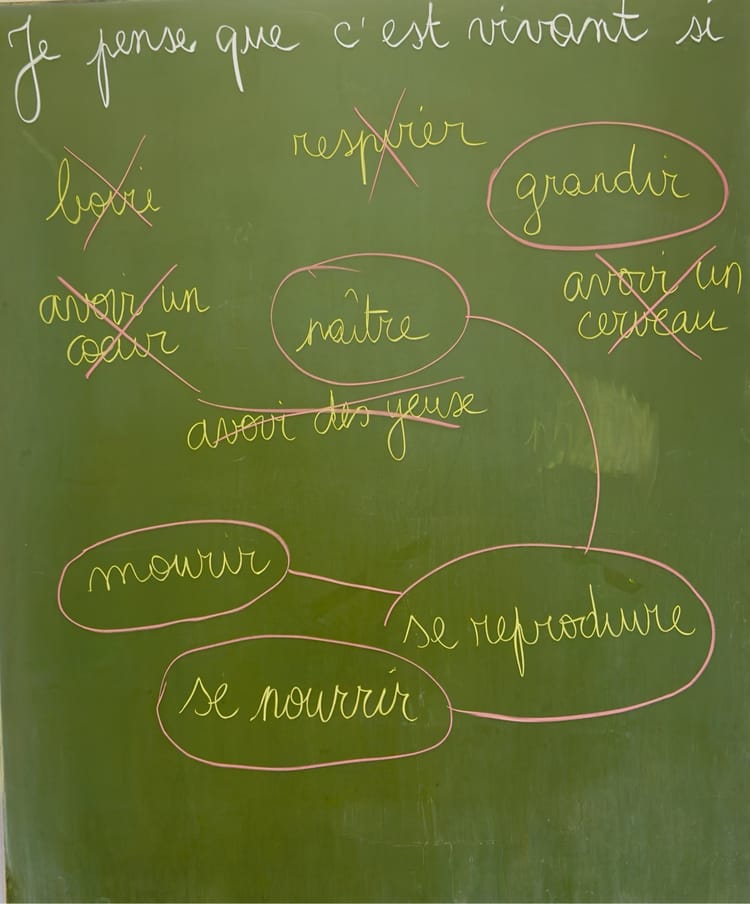 Je pense que c'est vivant si
respirer
boire
grandir
avoir un
coeur
naître
avoir un
cerveau
avoir des yeuse
mourir
se reproduire
se nourrir